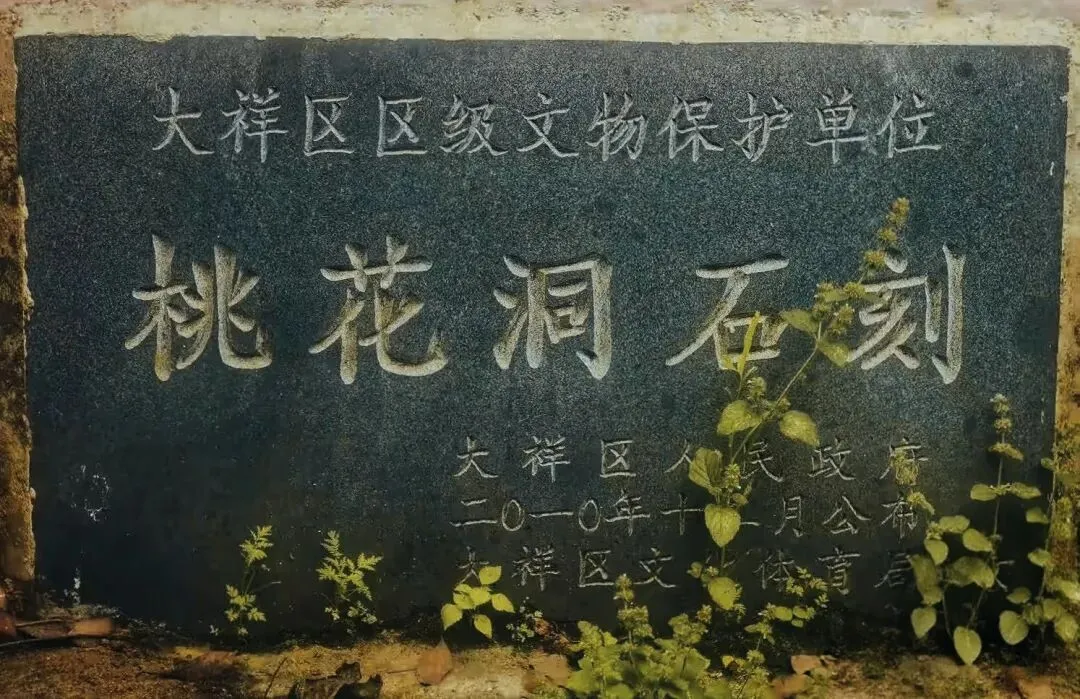 大祥区区级文物保护单位
桃花洞石刻
大祥区人民政府
二0一0年十二月公布
大祥区文 体育局